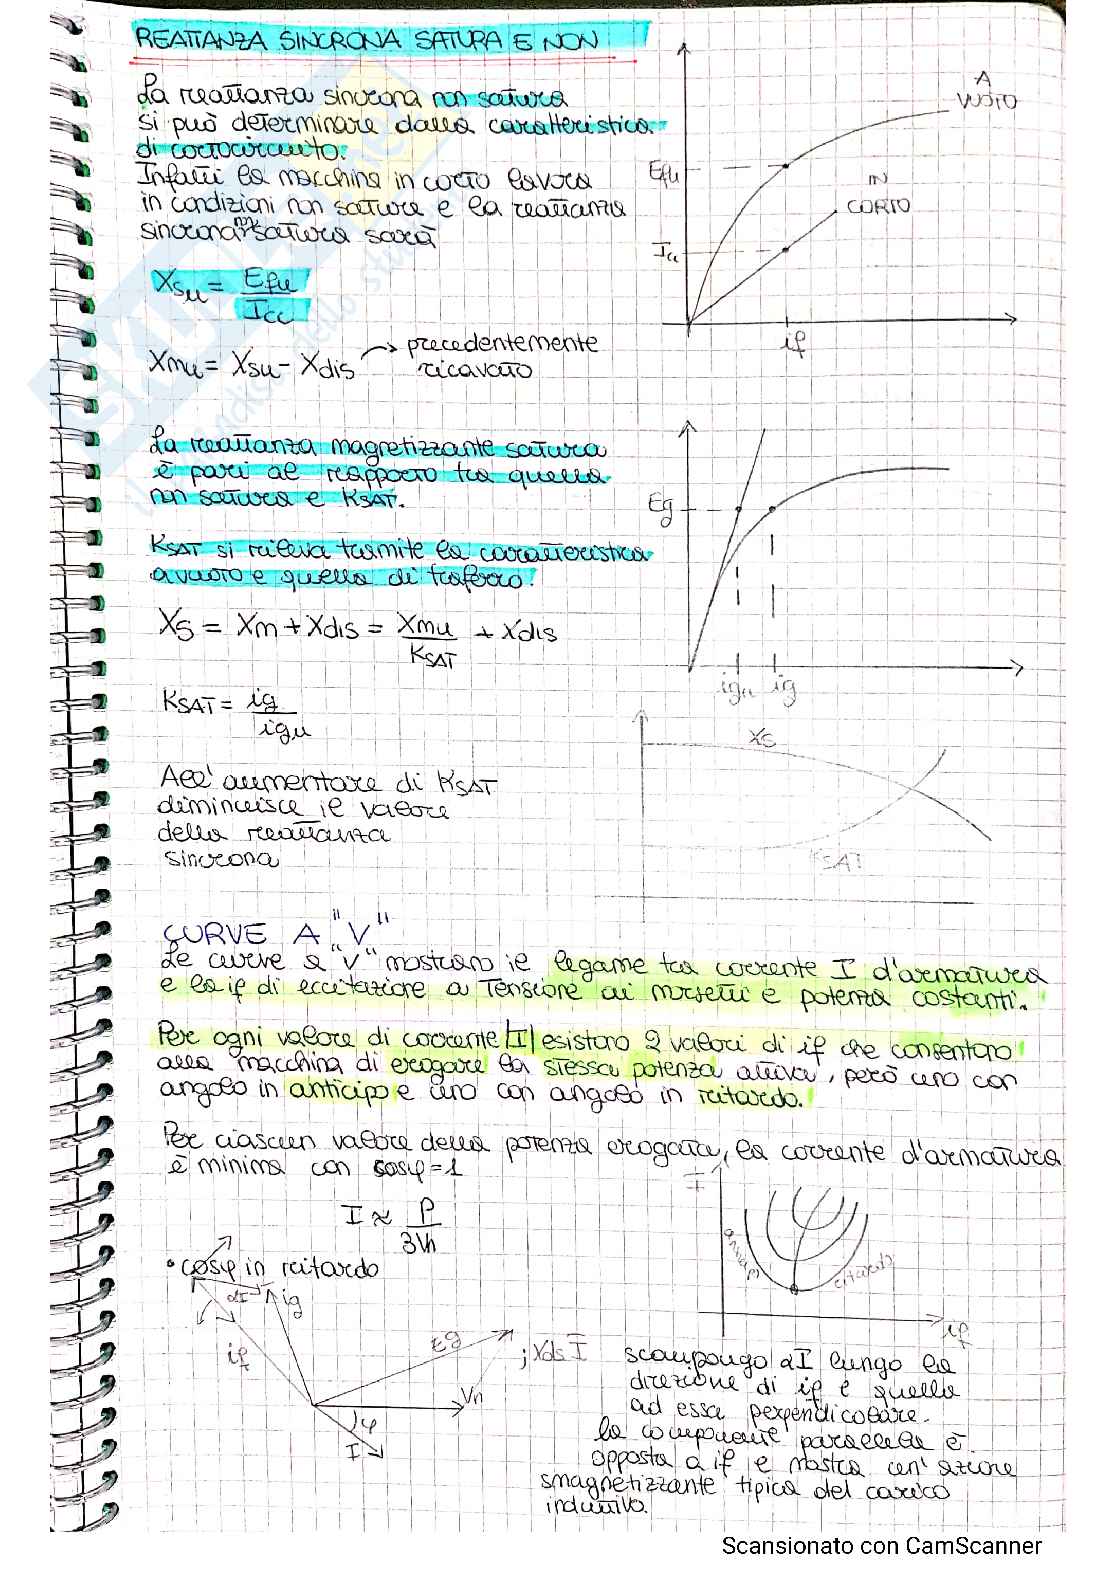 REATTANZA SINCRONA SATURA E NON
La reattanza sincrona non satura
si può determinare dalla caratteristica
di cortocircuito.
Infatti la macchina in corto lavora
in condizioni non sature e la reattanza
sincrona non satura sarà
Xsu = Efu / Icc
Xmu = Xsu - Xdis → precedentemente
ricavato
A
VUOTO
Efu
IN
CORTO
Icc
if
La reattanza magnetizzante satura
è pari al rapporto tra quella
non satura e KSAT.
KSAT si rileva tramite la caratteristica
a vuoto e quella di traferro.
XS = Xm + Xdis = Xmu / KSAT + Xdis
KSAT = ig / igu
Eg
igu ig
All'aumentare di KSAT
diminuisce il valore
della reattanza
sincrona
XS
KSAT
CURVE A "V"
Le curve a "V" mostrano il legame tra corrente I d'armatura
e la if di eccitazione a Tensione ai morsetti e potenza costanti.
Per ogni valore di corrente |I| esistono 2 valori di if che consentono
alla macchina di erogare la stessa potenza attiva, però uno con
angolo in anticipo e uno con angolo in ritardo.
Per ciascun valore della potenza erogata, la corrente d'armatura
è minima con cosφ=1
I ≈ P / 3Vn
I
anticipo
ritardo
if
• cosφ in ritardo
aI
ig
if
Eg
jXds I
Vn
φ
I
scompongo aI lungo la
direzione di if e quella
ad essa perpendicolare.
la componente parallela è
opposta a if e mostra un'azione
smagnetizzante tipica del carico
induttivo.
Scansionato con CamScanner